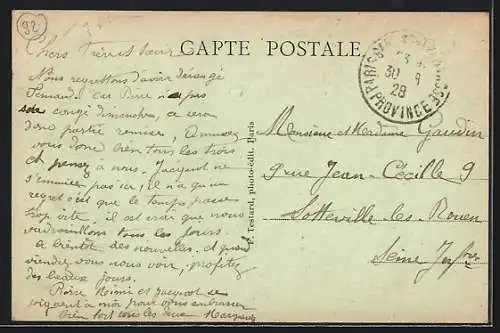 92
CARTE POSTALE
Chers Frère et Sœur
Nous regrettons d'avoir dérangé
Fernand. Car Pierre n'a pas
son congé dimanche, ce sera
donc partie remise, Amusez
vous donc bien tous les trois
et pensez à nous. Jacquot ne
s'ennuies pas ici, il n'a qu'un
regret c'est que le temps passe
trop vite, il est vrai que nous
vadrouillons tous les jours.
A bientôt des nouvelles, et quand
viendrez vous nous voir, profitez
des beaux jours.
Pierre Mimi et Jacquot se
joignent à moi pour vous embrasser
bien fort tous les deux
F. Testard, photo-édit. Paris
PARIS
30
28
PROVINCE
Monsieur et Madame Gaudin
9 rue Jean-Cécille 9
Sotteville-les-Rouen
Seine Infre